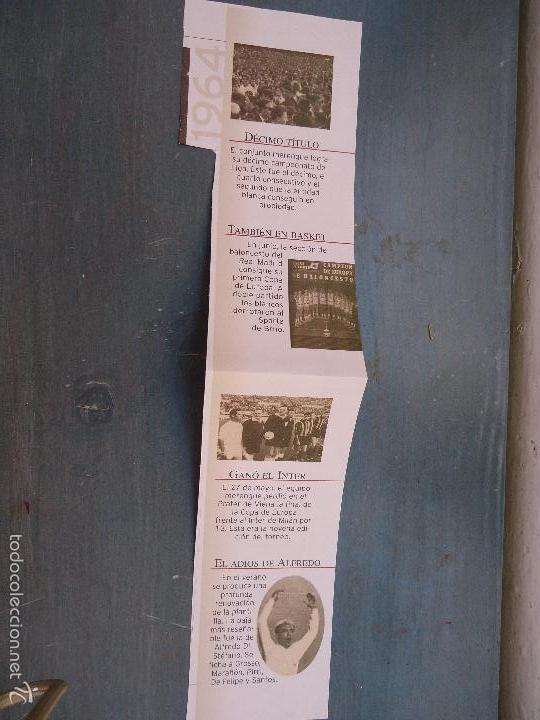 1964
DÉCIMO TÍTULO
El conjunto merengue logra
su décimo campeonato de
Liga. Este fue el décimo, el
cuarto consecutivo y el
segundo que la entidad
blanca conseguía en
propiedad.
TAMBIÉN EN BASKET
En junio, la sección de
baloncesto del
Real Madrid
consigue su
primera Copa
de Europa. A
doble partido
los blancos
derrotaron al
Sparta
de Brno.
CAMPEON
DE EUROPA
DE BALONCESTO
GANÓ EL INTER
El 27 de mayo, el equipo
merengue perdió en el
Prater de Viena la final de
la Copa de Europa
frente al Inter de Milán por
1-3. Esta era la novena edi-
ción del torneo.
EL ADIOS DE ALFREDO
En el verano
se produce una
profunda
renovación
de la planti-
lla. La baja
más reseña-
ble fue la de
Alfredo Di
Stéfano. Se
ficha a Grosso,
Marañón, Pirri,
De Felipe y Santos.
todocoleccion